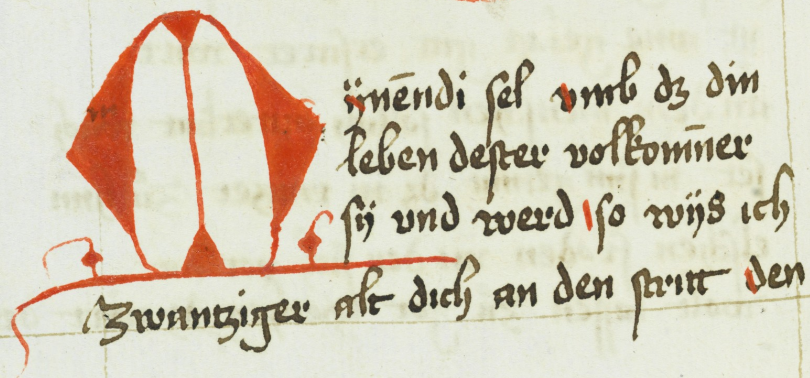 Mÿnēndi sel vmb dz din
leben dester volkom̄er
sÿ vnd werd so wÿs ich
Zwantziger alt dich an den stritt den